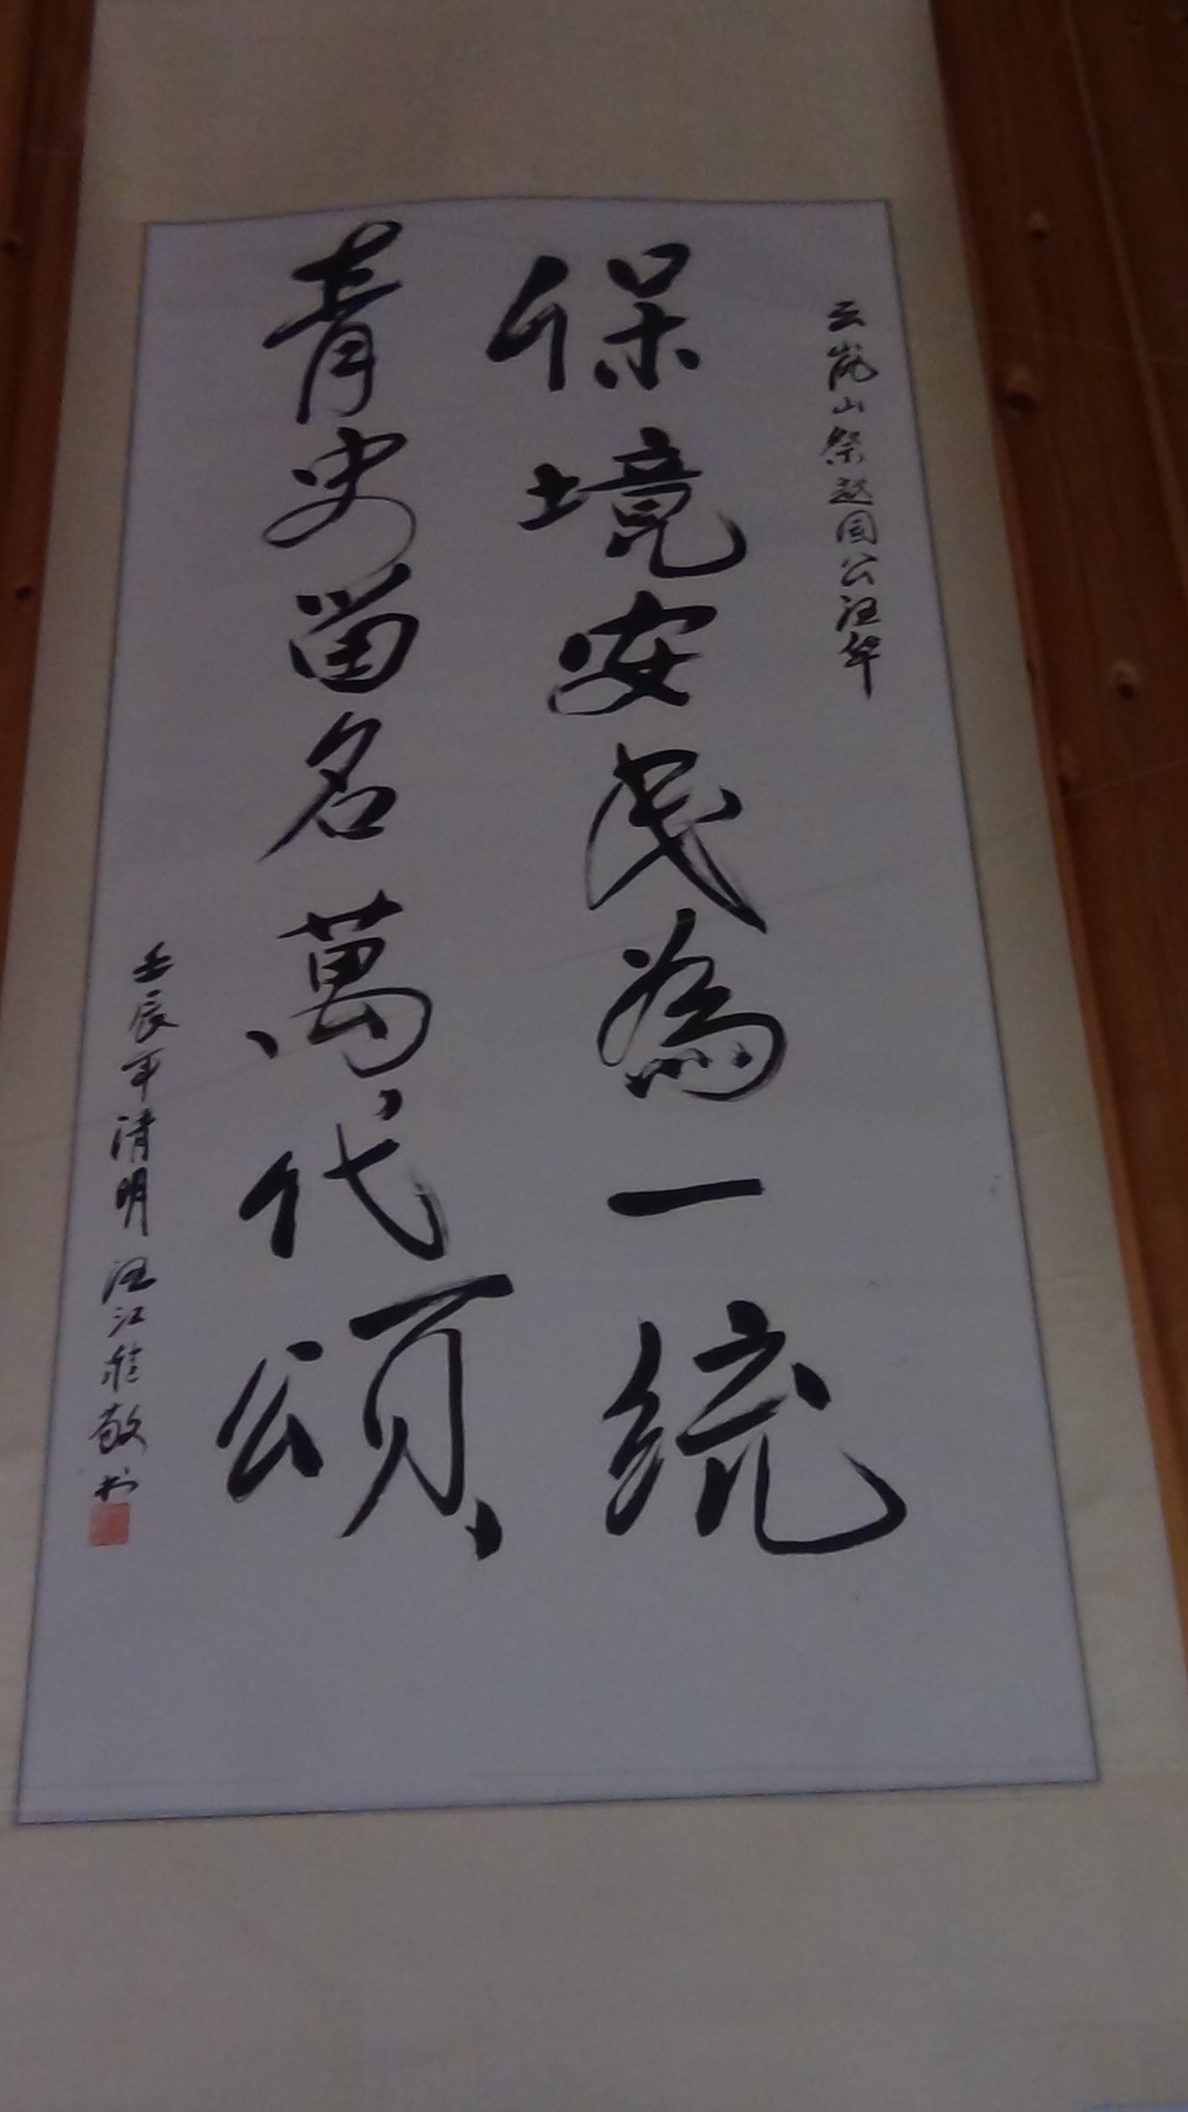 云岚山祭越国公汪华
保境安民為一統
青史留名萬代頌
壬辰年清明汪江淮敬书